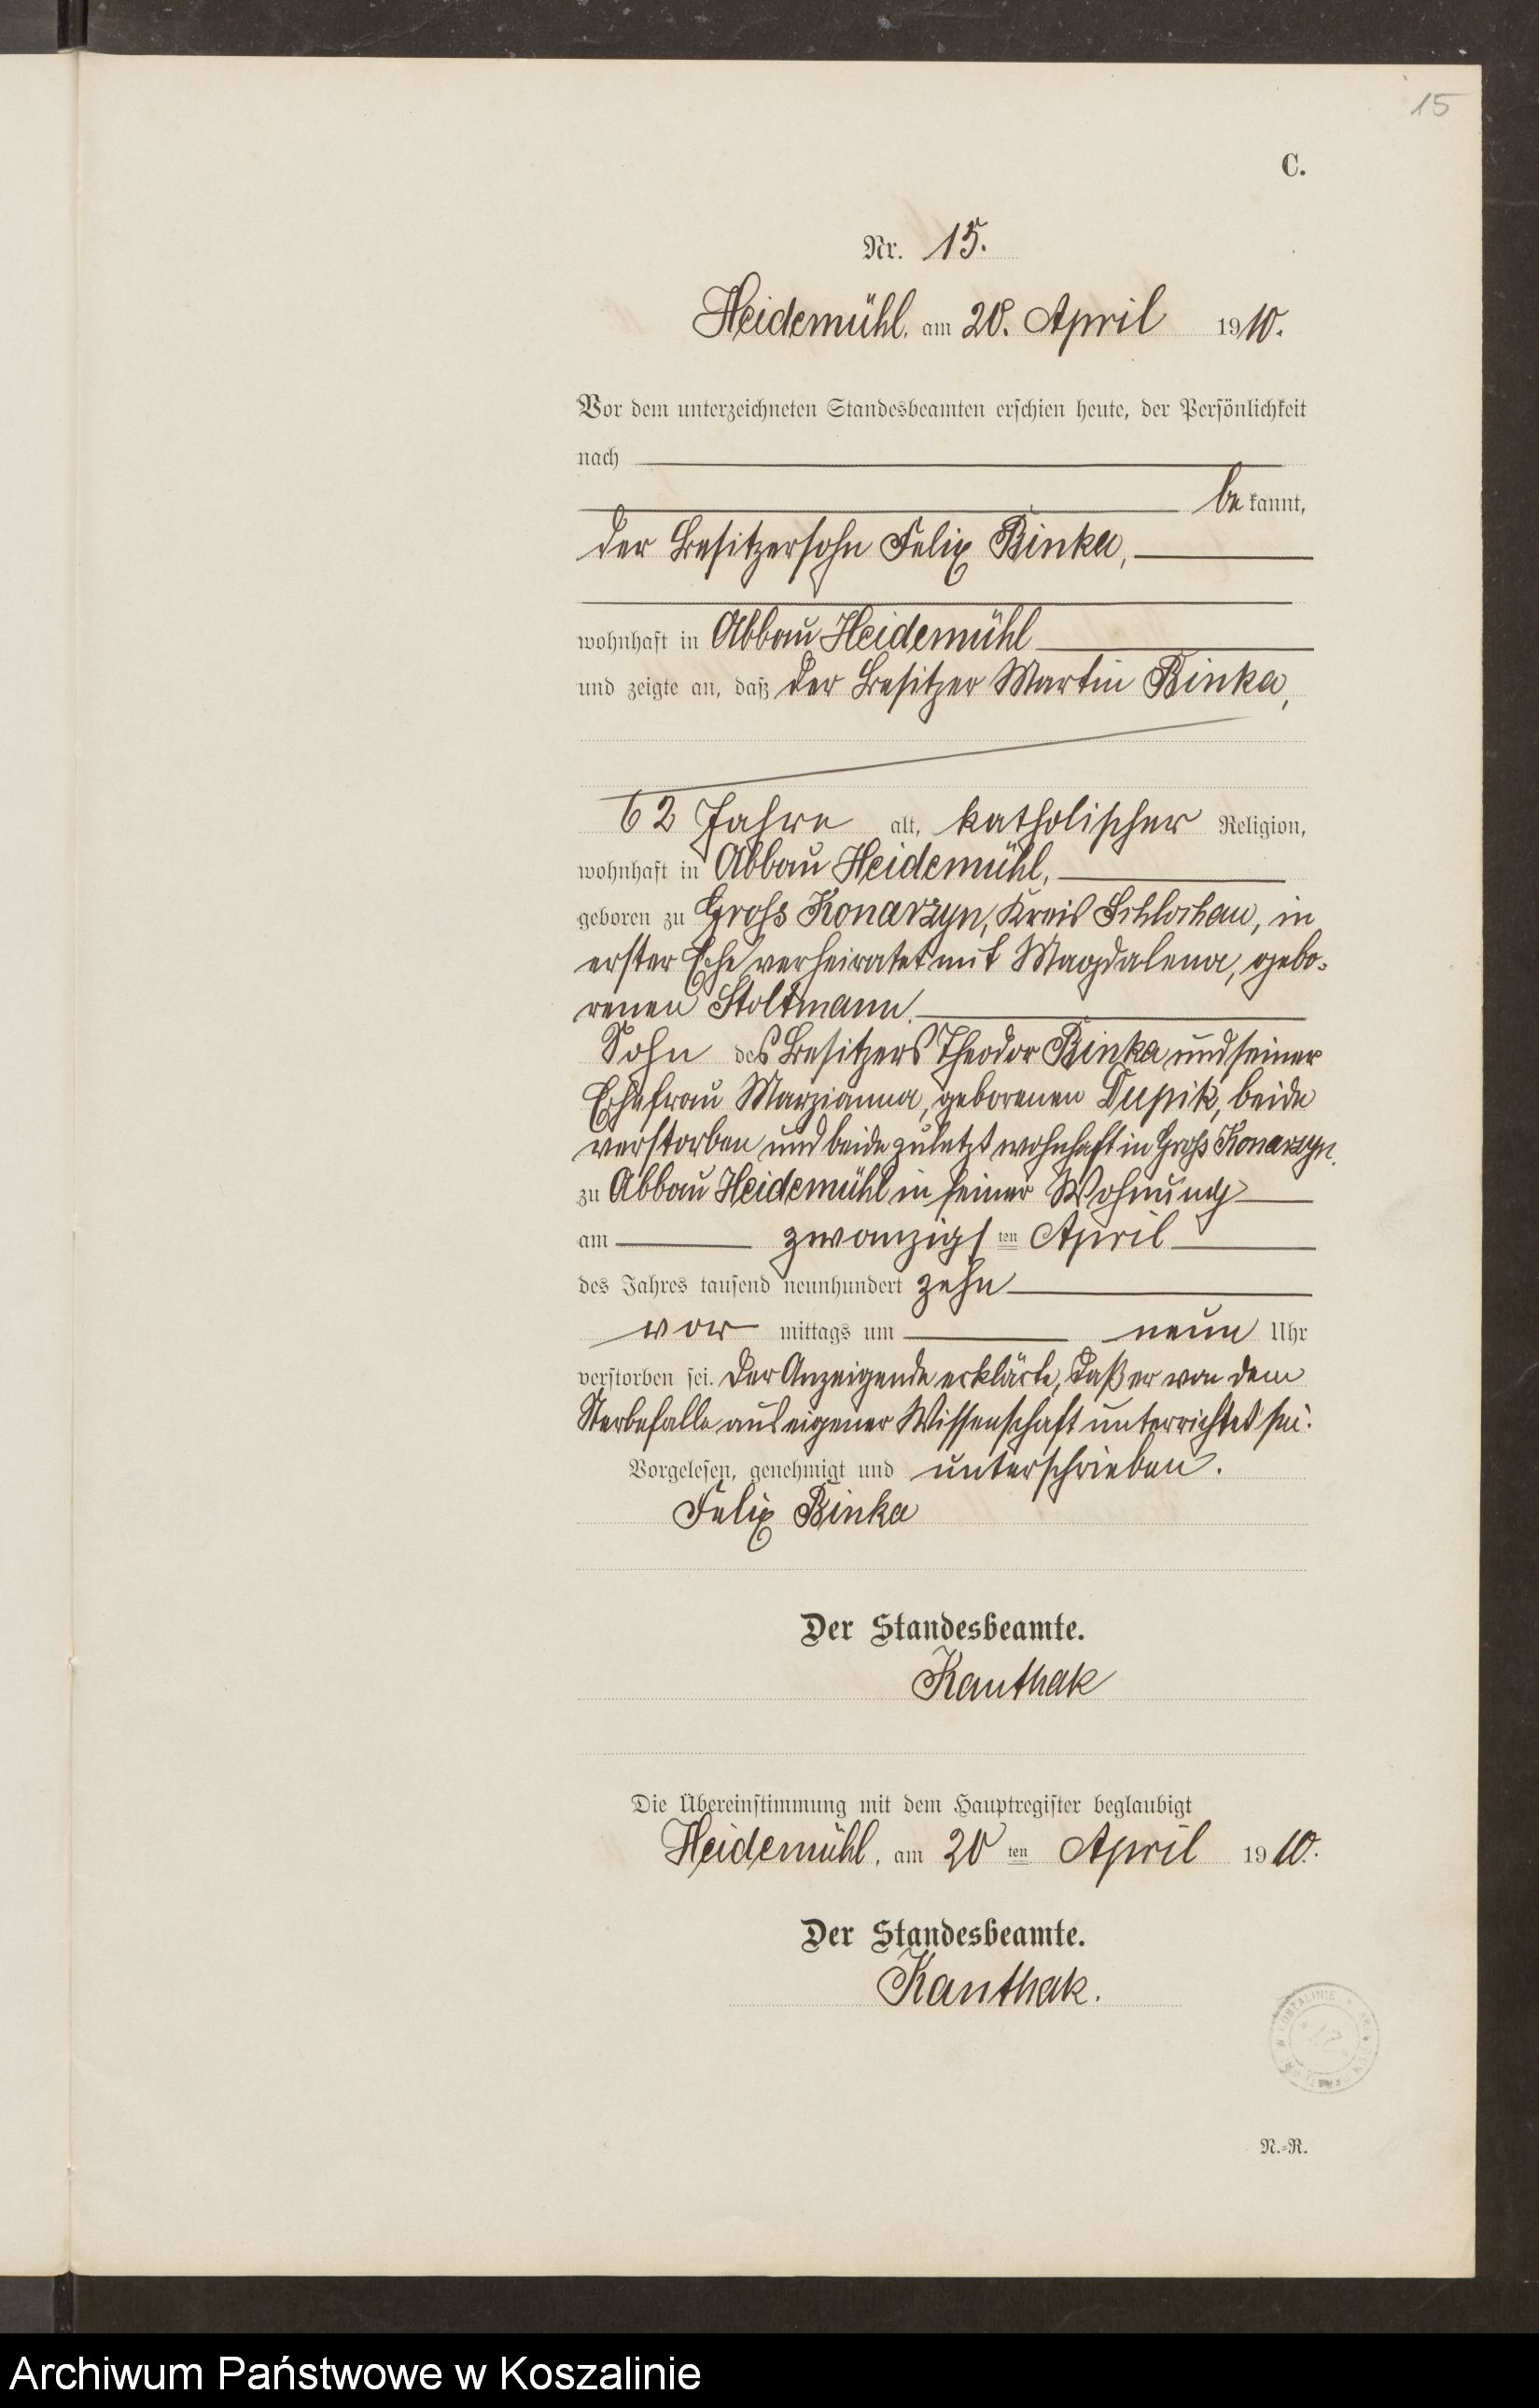 15
C.
Nr. 15.
Heidemühl, am 20. April 1910.
Vor dem unterzeichneten Standesbeamten erschien heute, der Persönlichkeit
nach
be kannt,
der Besitzersohn Felix Binka,
wohnhaft in Abbau Heidemühl
und zeigte an, daß der Besitzer Martin Binka,
62 Jahre alt, katholischer Religion,
wohnhaft in Abbau Heidemühl,
geboren zu Groß Konarzyn, Kreis Schlochau, in
erster Ehe verheiratet mit Magdalena, gebo-
renen Stoltmann.
Sohn des Besitzers Theodor Binka und seiner
Ehefrau Marzianna, geborenen Dupik, beide
verstorben und beide zuletzt wohnhaft in Groß Konarzyn.
zu Abbau Heidemühl in seiner Wohnung
am zwanzigs ten April
des Jahres tausend neunhundert zehn
vor mittags um neun Uhr
verstorben sei. Der Anzeigende erklärte, daß er von dem
Sterbefalle aus eigener Wissenschaft unterrichtet sei.
Vorgelesen, genehmigt und unterschrieben.
Felix Binka
Der Standesbeamte.
Kanthak
Die Übereinstimmung mit dem Hauptregister beglaubigt
Heidemühl, am 20 ten April 1910.
Der Standesbeamte.
Kanthak.
KOSZALINIE
N.-R.
Archiwum Państwowe w Koszalinie